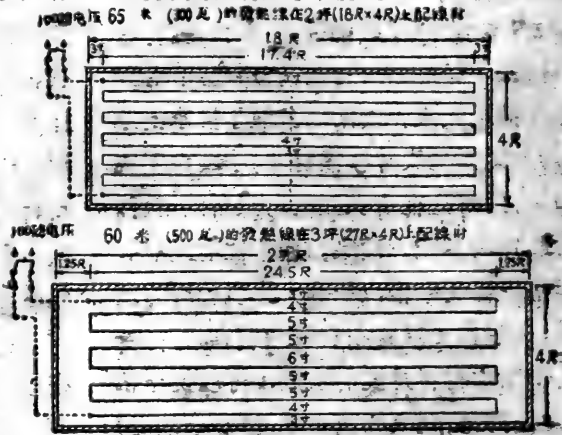 100磁电压 65 米 (300瓦)的發熱線在2坪(18尺×4尺)上配線时
18尺
3寸 17.4尺 3寸
3寸
4寸
3寸
4尺
100磁电压 60 米 (500瓦)的發熱線在3坪(27尺×4尺)上配線时
27尺
1.25尺 24.5尺 1.25尺
3寸
4寸
5寸
5寸
6寸
5寸
5寸
4寸
3寸
4尺